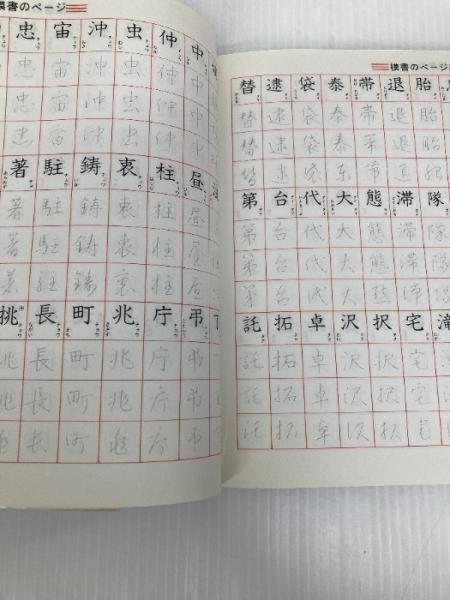 横書のページ
忠 宙 沖 虫 仲 中
忠 宙 沖 虫 仲
忠 宙 沖 虫 仲
忠 宙 沖 虫 仲
著 駐 鋳 衷 柱 昼
著 駐 鋳 衷 柱 昼
著 駐 鋳 衷 柱 昼
著 駐 鋳 衷 柱 昼
挑 長 町 兆 庁 弔 丁
挑 長 町 兆 庁 弔
挑 長 町 兆 庁 弔
挑 長 町 兆 庁 弔
横書のページ
替 逮 袋 泰 帯 退 胎
替 逮 袋 泰 帯 退 胎
替 逮 袋 泰 帯 退 胎
替 逮 袋 泰 帯 退 胎
第 台 代 大 態 滞 隊
第 台 代 大 態 滞 隊
第 台 代 大 態 滞 隊
第 台 代 大 態 滞 隊
託 拓 卓 沢 択 宅 滝
託 拓 卓 沢 択 宅
託 拓 卓 沢 択 宅
託 拓 卓 沢 択 宅